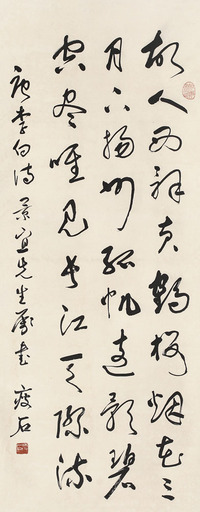 故人西辭黃鶴樓烟花三
月下揚州孤帆遠影碧
空盡唯見長江天際流
唐李白詩 景宜先生屬書 瘦石